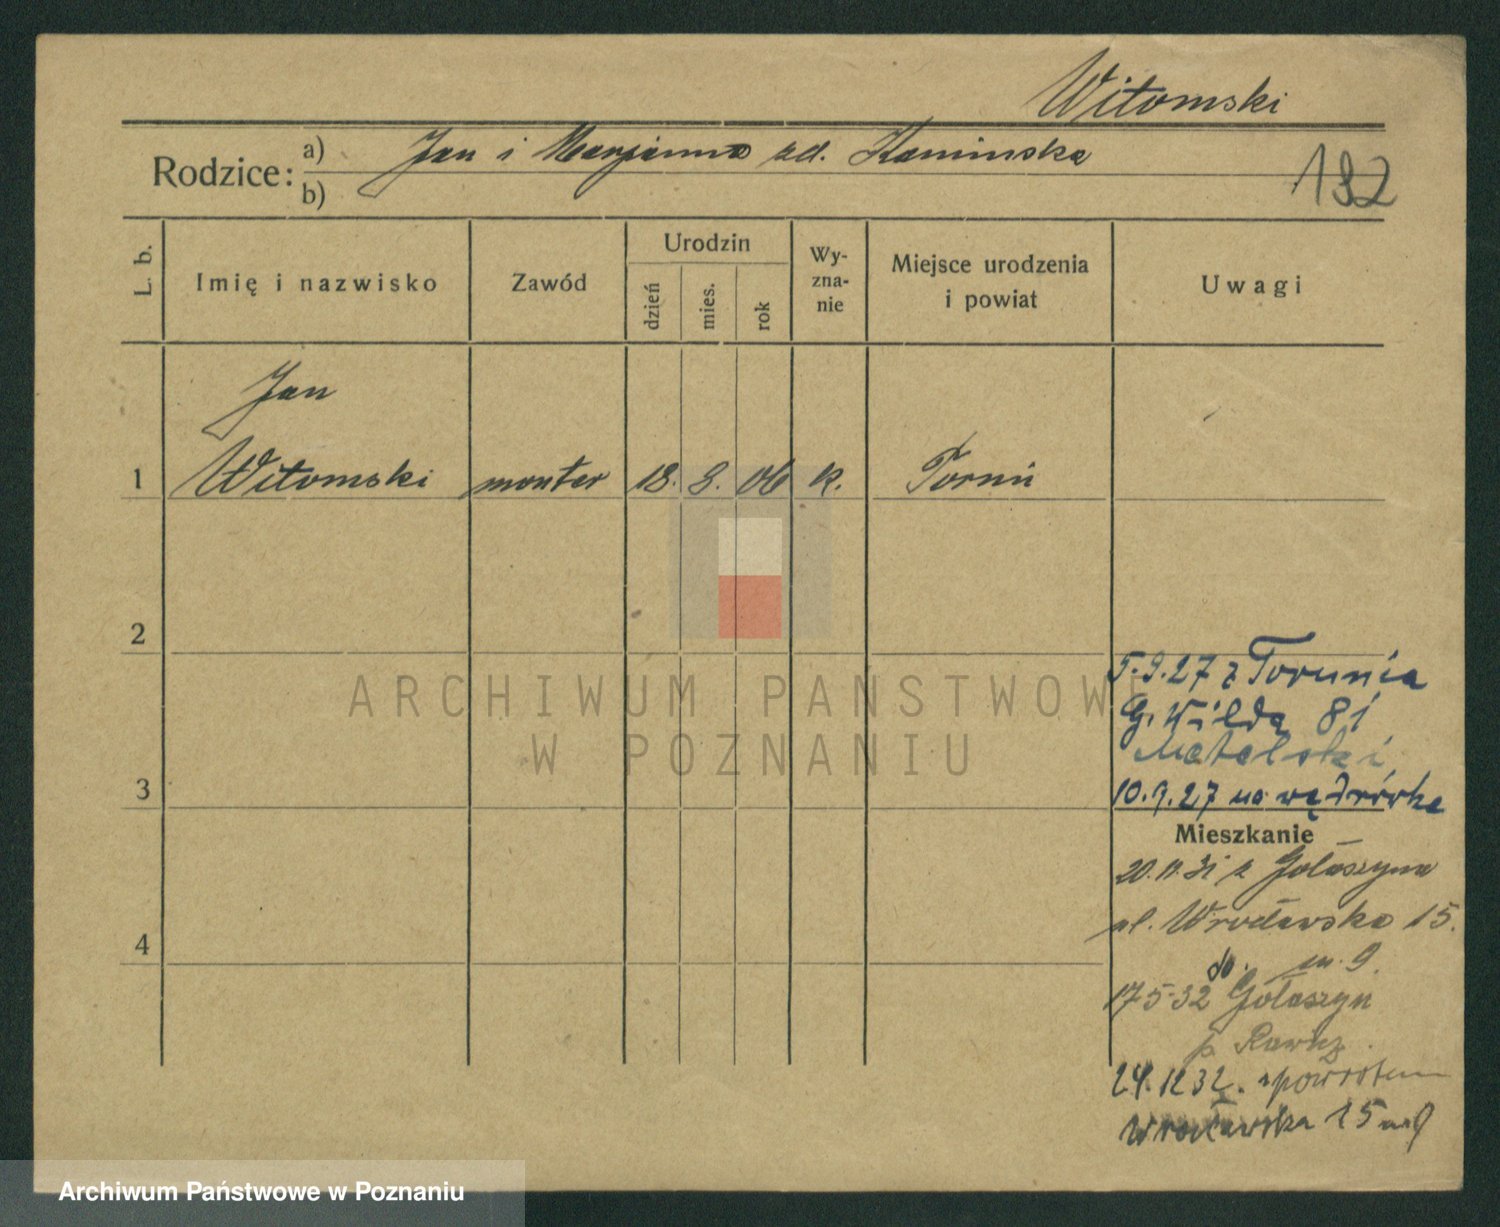 Witomski
Rodzice:
a) Jan i Marjanna zd. Kaminska
b)
192
L. b.
Imię i nazwisko
Zawód
Urodzin
dzień
mies.
rok
Wy-
zna-
nie
Miejsce urodzenia
i powiat
Uwagi
Jan
1 Witomski monter 18. 8. 06 k. Toruń
2
5.9.27 z Torunia
G. Wilda 81
Matelski
3
10.9.27 na wędrówkę
Mieszkanie
20.11.31 z Gołaszyna
ul. Wrocławska 15.
4
m. 9.
do
17-5-32 Gołaszyn
p. Rawicz.
24.12 32. spowrotem
Wrocławska 15 m 9
ARCHIWUM PAŃSTWOWE
W POZNANIU
Archiwum Państwowe w Poznaniu